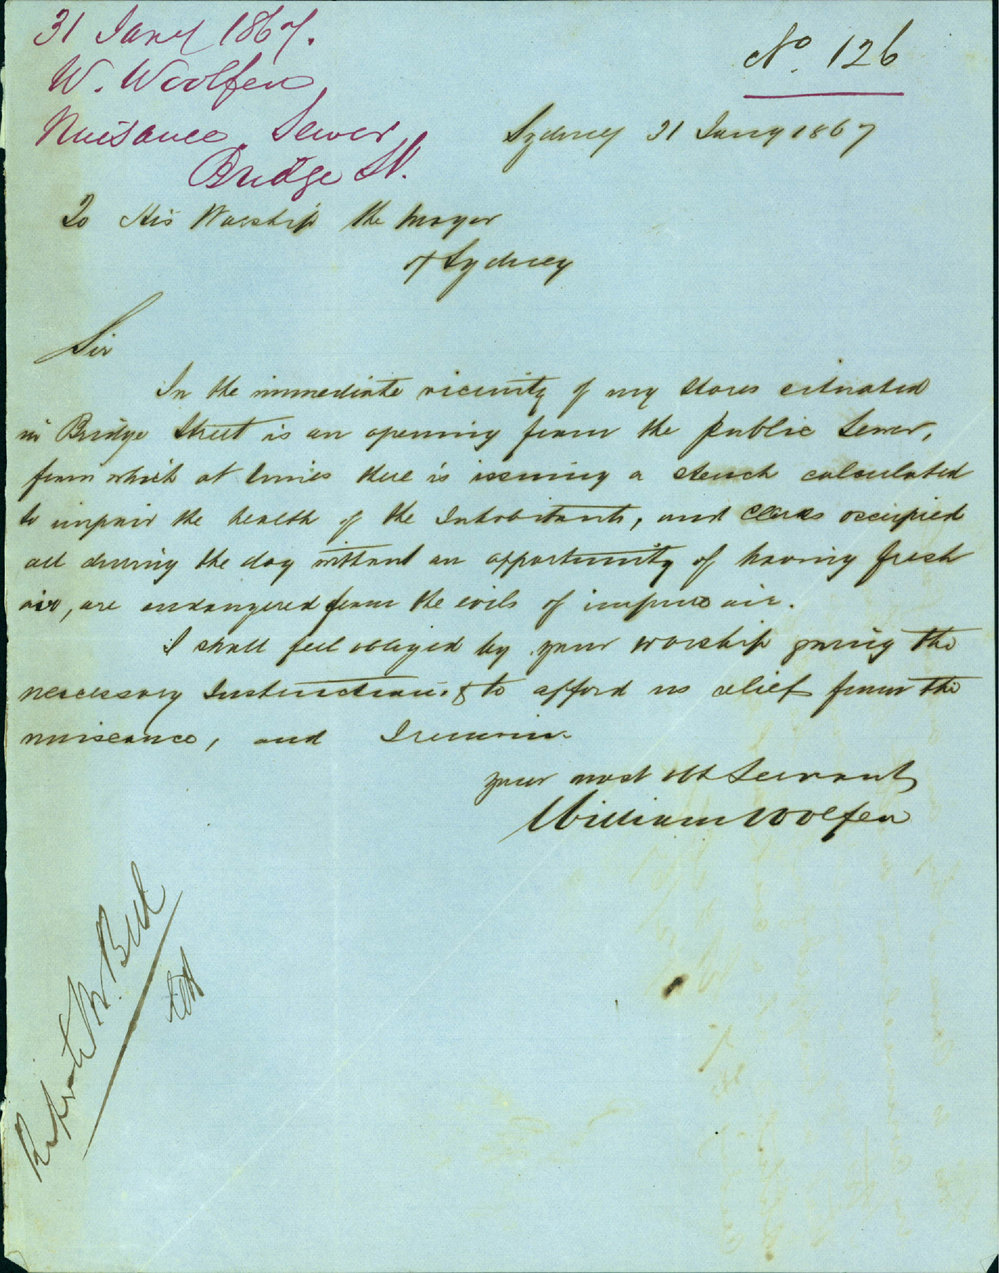 31 Jany 1867.
W. Woolfen
Nuisance Sewer
Bridge St.
No. 126
Sydney 31 Jany 1867
To His Worship the Mayor
of Sydney
Sir
In the immediate vicinity of my Stores situated
in Bridge Street is an opening from the public Sewer,
from which at times there is issuing a stench calculated
to impair the health of the Inhabitants, and Clerks occupied
all during the day without an opportunity of having fresh
air, are endangered from the evils of impure air.
I shall feel obliged by your worship giving the
necessary Instructions & to afford us relief from the
nuiseance, and I remain
your most obt Servant
William Woolfen
Refer to Mr. Bell